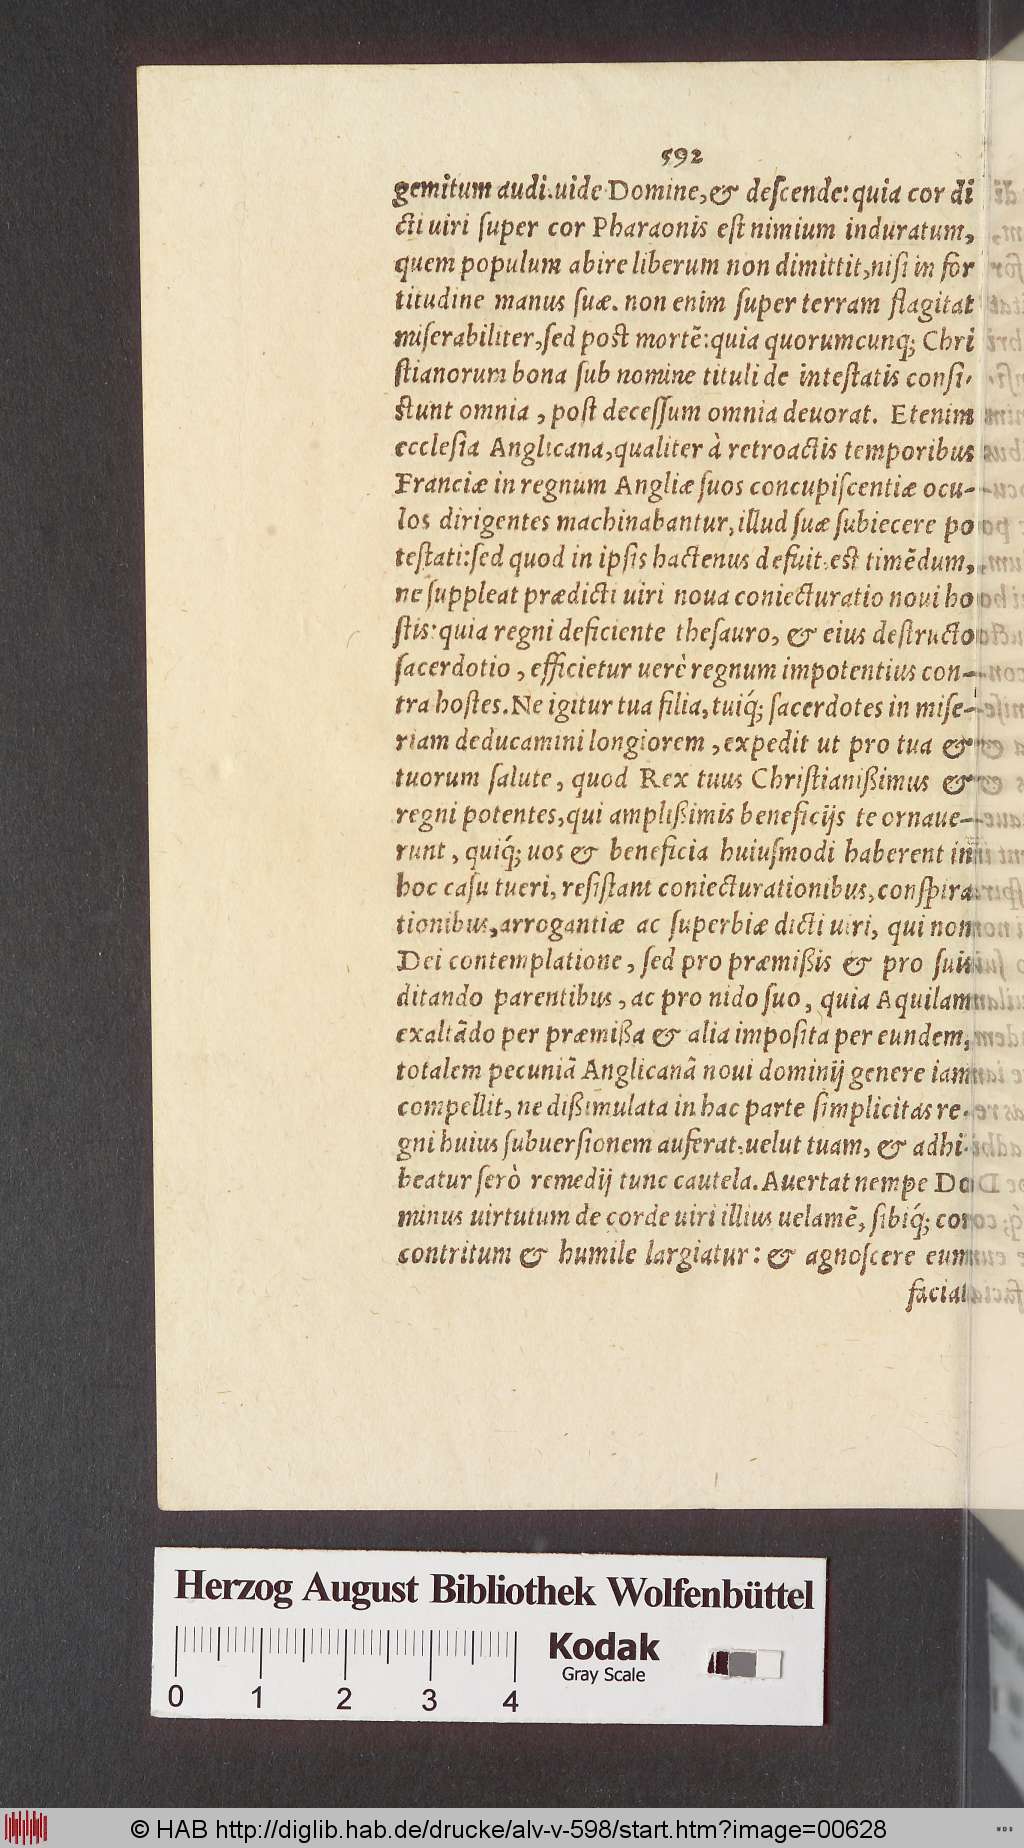 592
gemitum audi.uide Domine,& deſcende: quia cor di
cti uiri ſuper cor Pharaonis eſt nimium induratum,
quem populum abire liberum non dimittit,niſi in for
titudine manus ſuæ. non enim ſuper terram flagitat
miſerabiliter,ſed poſt mortẽ:quia quorumcunq; Chri
ſtianorum bona ſub nomine tituli de inteſtatis conſi-
ſtunt omnia , poſt deceſſum omnia deuorat. Etenim
eccleſia Anglicana,qualiter à retroactis temporibus
Franciæ in regnum Angliæ ſuos concupiſcentiæ ocu-
los dirigentes machinabantur,illud ſuæ ſubiecere po
teſtati:ſed quod in ipſis hactenus defuit.eſt timẽdum,
ne ſuppleat prædicti uiri noua coniecturatio noui ho
ſtis:quia regni deficiente theſauro, & eius deſtructo
ſacerdotio , efficietur uerè regnum impotentius con-
tra hoſtes.Ne igitur tua filia,tuiq́; ſacerdotes in miſe-
riam deducamini longiorem , expedit ut pro tua &
tuorum ſalute, quod Rex tuus Chriſtianißimus &
regni potentes,qui amplißimis beneficijs te ornaue-
runt , quiq́; uos & beneficia huiuſmodi haberent in
hoc caſu tueri, reſiſtant coniecturationibus,conſpira
tionibus,arrogantiæ ac ſuperbiæ dicti uiri, qui non
Dei contemplatione, ſed pro præmißis & pro ſuis
ditando parentibus , ac pro nido ſuo, quia Aquilam
exaltãdo per præmißa & alia impoſita per eundem,
totalem pecuniã Anglicanã noui dominij genere iam
compellit, ne dißimulata in hac parte ſimplicitas re-
gni huius ſubuerſionem auferat.uelut tuam, & adhi-
beatur ſerò remedij tunc cautela. Auertat nempe Do
minus uirtutum de corde uiri illius uelamẽ, ſibiq́; cor
contritum & humile largiatur: & agnoſcere eum
faciat
Herzog August Bibliothek Wolfenbüttel
Kodak
Gray Scale
0 1 2 3 4
© HAB http://diglib.hab.de/drucke/alv-v-598/start.htm?image=00628